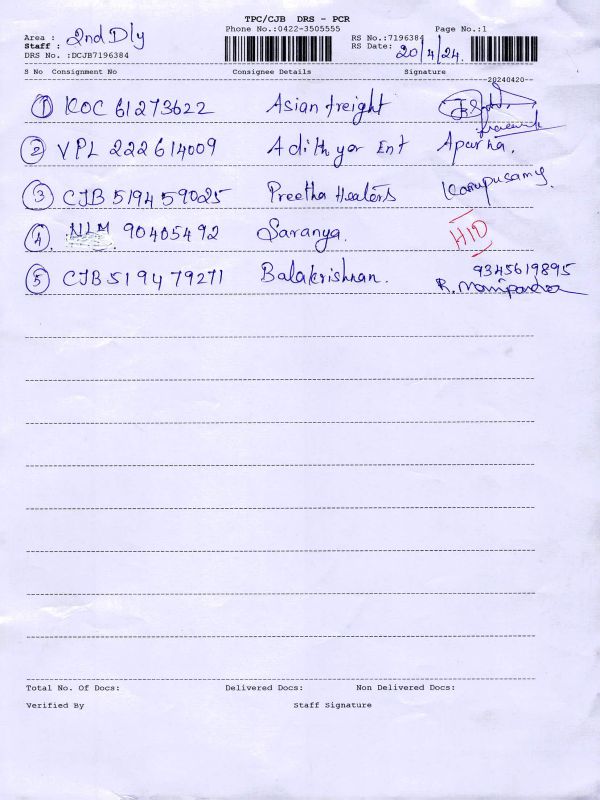 TPC/CJB DRS - PCR
Area : 2nd Dly Phone No.:0422-3505555 RS No.:7196384 Page No.:1
Staff : RS Date: 20/4/24.
DRS No. :DCJB7196384
S No Consignment No Consignee Details Signature
20240420
1 KOC 61273622 Asian freight
2 VPL 222614009 Adithyar Ent Apurna.
3 CJB 519459025 Preetha Healers Karupusamy
4. NLM 90405492 Saranya. HID
5 CJB 519479271 Balakrishnan. 9345619895
R.
Total No. Of Docs: Delivered Docs: Non Delivered Docs:
Verified By Staff Signature